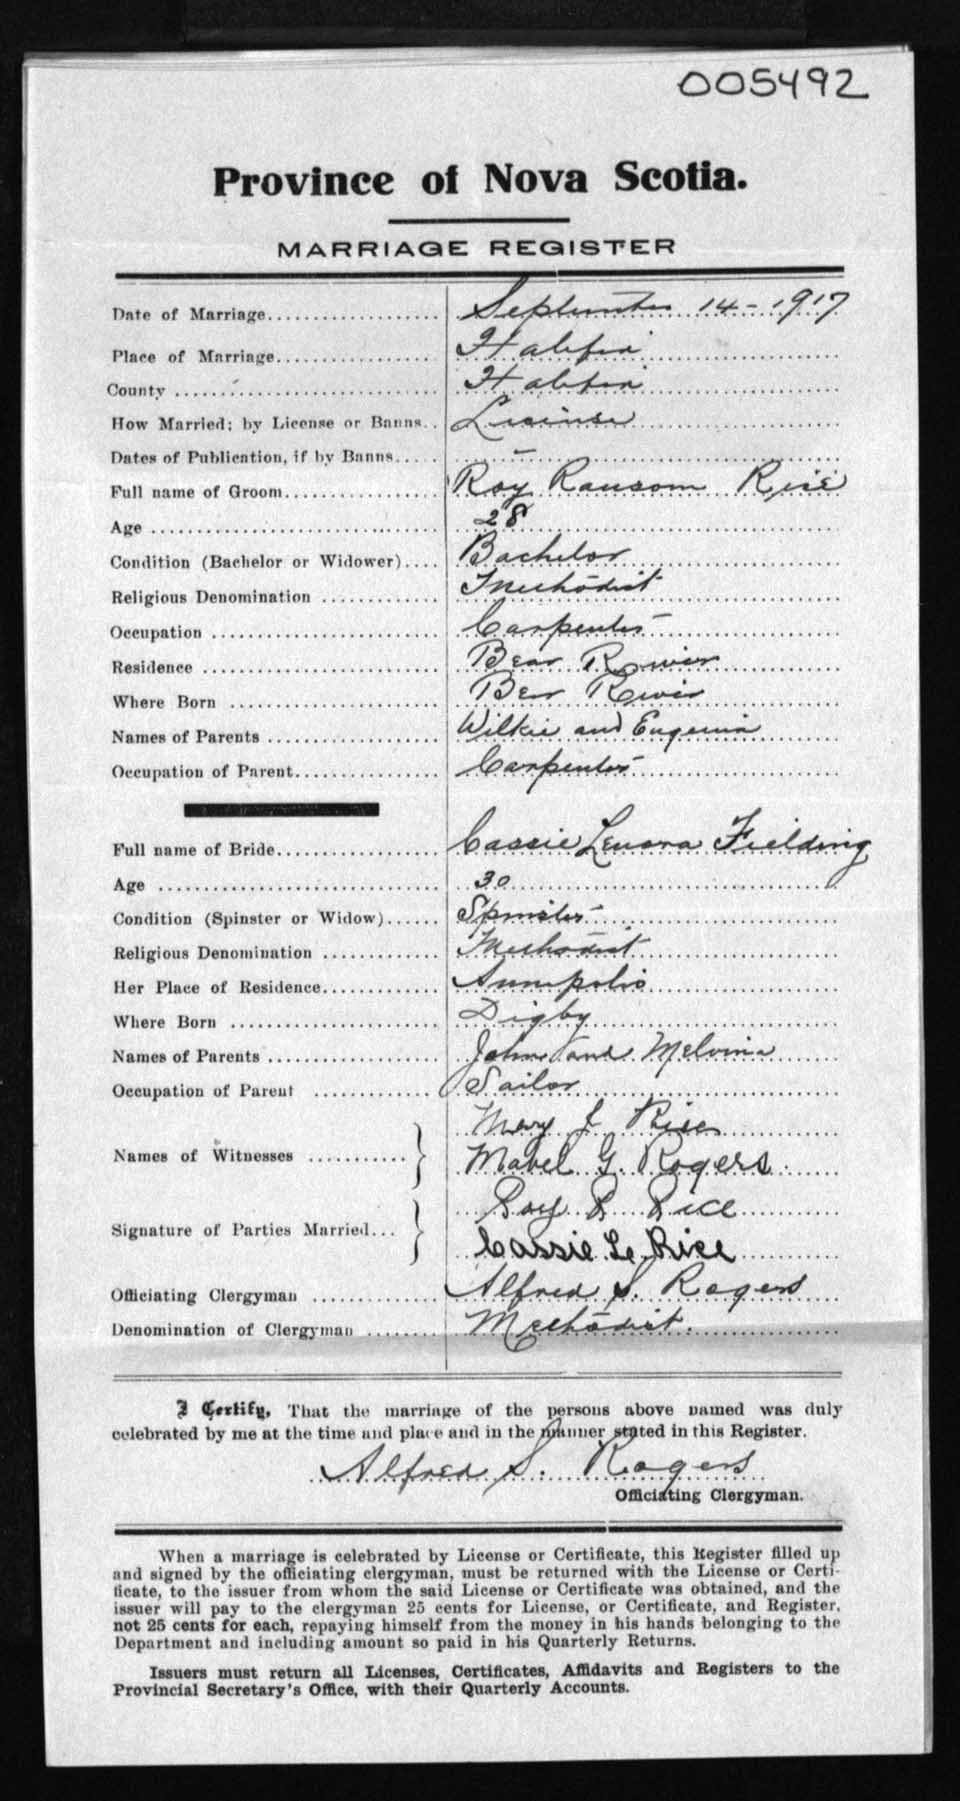 005492
Province of Nova Scotia.
MARRIAGE REGISTER
Date of Marriage................... September 14 - 1917
Place of Marriage................... Halifax
County ................... Halifax
How Married; by License or Banns.. License
Dates of Publication, if by Banns..... —
Full name of Groom................ Roy Ransom Rice
Age ................... 28
Condition (Bachelor or Widower).... Bachelor
Religious Denomination ............. Methodist
Occupation ................... Carpenter
Residence ................... Bear River
Where Born ................... Bear River
Names of Parents ................... Wilkie and Eugenia
Occupation of Parent................. Carpenter
Full name of Bride................... Cassie Lenora Fielding
Age ................... 30
Condition (Spinster or Widow)...... Spinster
Religious Denomination ............. Methodist
Her Place of Residence............. Annapolis
Where Born ................... Digby
Names of Parents ................... John and Melvina
Occupation of Parent ............. Sailor
Names of Witnesses .......... Mary J Rice
Mabel G. Rogers.
Signature of Parties Married... Roy R Rice
Cassie L. Rice
Officiating Clergyman ............. Alfred S. Rogers
Denomination of Clergyman ....... Methodist.
I Certify, That the marriage of the persons above named was duly
celebrated by me at the time and place and in the manner stated in this Register.
Alfred S. Rogers
Officiating Clergyman.
When a marriage is celebrated by License or Certificate, this Register filled up
and signed by the officiating clergyman, must be returned with the License or Certi-
ficate, to the issuer from whom the said License or Certificate was obtained, and the
issuer will pay to the clergyman 25 cents for License, or Certificate, and Register,
not 25 cents for each, repaying himself from the money in his hands belonging to the
Department and including amount so paid in his Quarterly Returns.
Issuers must return all Licenses, Certificates, Affidavits and Registers to the
Provincial Secretary's Office, with their Quarterly Accounts.